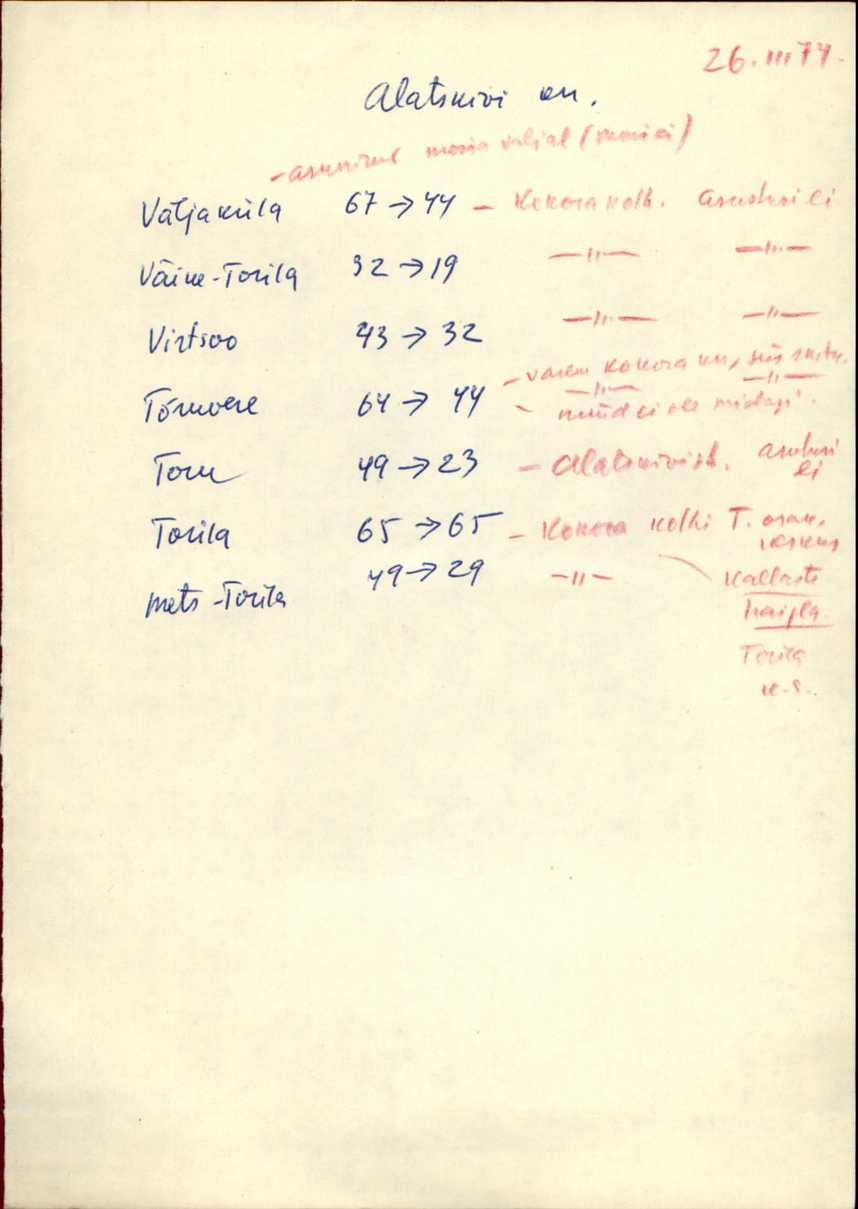 26. III 74.
Alatskivi kn.
- asunised mõisa väljal (mõisa)
Väljaküla 67 → 44 - Kokora kolh. asustusi ei
Väike-Torila 32 → 19 —"— —"—
Virtsoo 43 → 32 —"— —"—
- varem Kokora kn, siis
Tõruvere 64 → 44 —"— —"—
- nüüd ei ole midagi.
Toru 49 → 23 - Alatskivi sh. asustusi ei
Torila 65 → 65 - Kokora kolhi T. osak. keskus
Mets-Torila 49 → 29 -"- Kallaste
haigla.
Torila
k-s.